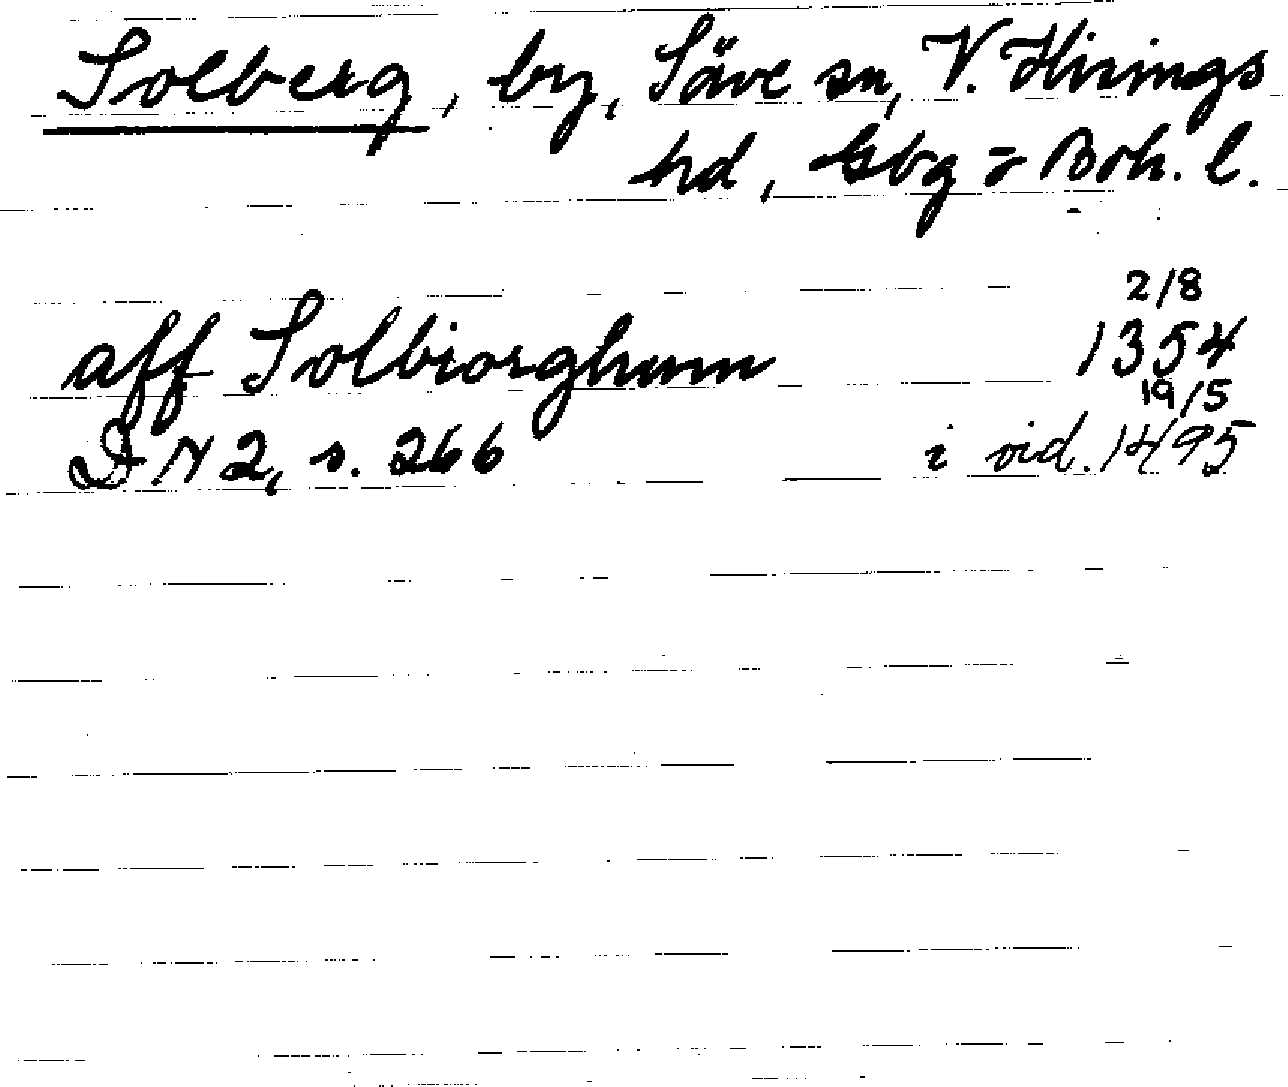 Solberg, by, Säve sn, V. Hisings
hd, Gbg o Boh. l.
2/8
aff Solbiorghum 1354
19/5
DN 2, s. 266 i vid. 1495